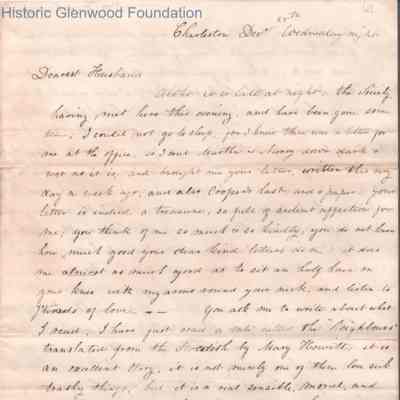 Historic Glenwood Foundation
Charleston Decr 27th Wednesday night
Dearest Husband
Altho it is late at night, the Society
having met here this evening, and have been gone some
time, I could not go to sleep, for I knew there was a letter for
me at the office, so I sent Martha & Henry down dark &
wet as it is, and brought me your letter, written this very
day a week ago, and also Coopers last and a paper. Your
letter is indeed a treasure, so full of ardent affection for
me, you think of me so much & so kindly, you do not know
how much good your dear kind letters do me it does
me almost as much good as to sit an half hour on
your knee with my arms round your neck, and listen to
words of love. — — You ask me to write about what
I read, I have just read a tale called the "Neighbours"
translated from the Swedish by Mary Howitt, it is
an excellent story, it is not merely one of these love sick
trashy things, but it is a real sensible, moral, and